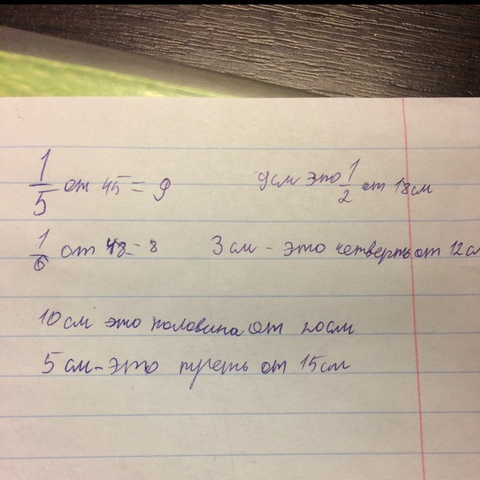 1/5 от 45 = 9
9см это 1/2 от 18см
1/6 от 48 = 8
3 см - это четверть от 12 см
10 см это половина от 20см
5 см - это треть от 15 см